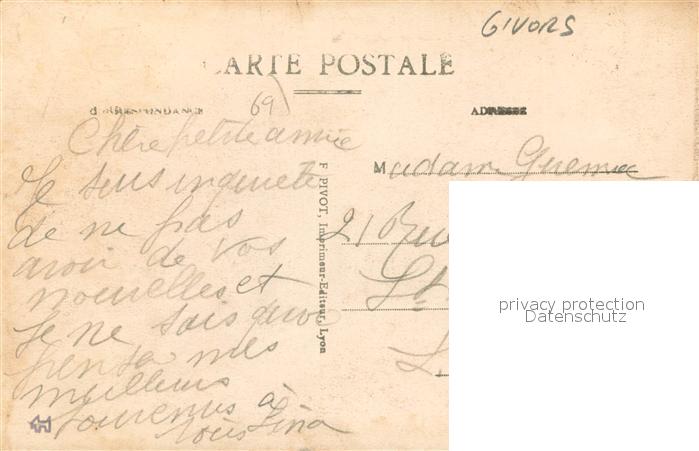 GIVORS
CARTE POSTALE
CORRESPONDANCE
69
ADRESSE
Chère petite amie
Je suis inquiete
de ne pas
avoir de vos
nouvelles et
je ne sais quoi
pensa mes
meilleurs
souvenirs à
tous Lina
F. PIVOT, Imprimeur-Editeur, Lyon
Madam
21 Rue
St
L
privacy protection
Datenschutz